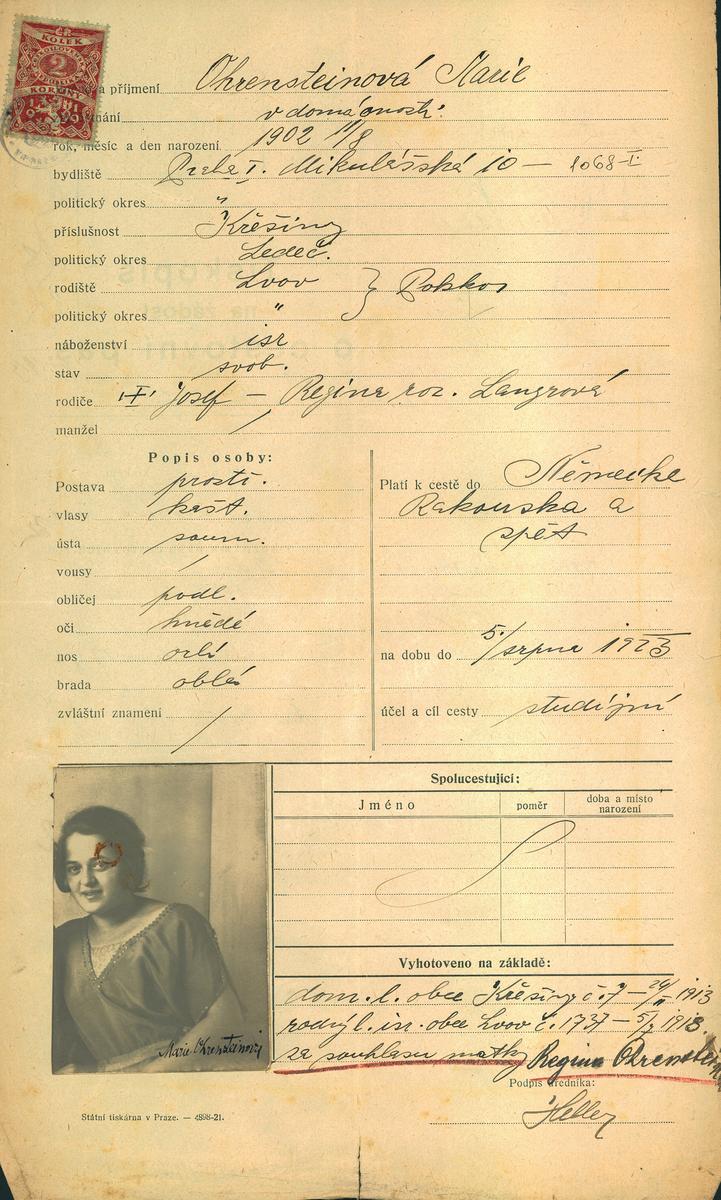 KOLEK
2
KORUNY
a příjmení Ohrensteinová Marie
v domácnosti
rok, měsíc a den narození 1902 11/8
bydliště Praha I. Mikulášská 10 — 1068-I.
politický okres "
příslušnost Křešiny
politický okres Ledeč.
rodiště Lvov } Polsko
politický okres "
náboženství isr
stav svob.
rodiče Josef — Regina roz. Langrová
manžel /
Popis osoby:
Postava prostř.
vlasy kašt.
ústa soum.
vousy /
obličej podl.
oči hnědé
nos orlí
brada oblá
zvláštní znamení /
Platí k cestě do Německa
Rakouska a
zpět
na dobu do 5./srpna 1923
účel a cíl cesty studijní
Spolucestující:
Jméno poměr doba a místo narození
Vyhotoveno na základě:
dom. l. obce Křešiny č. 7 — 1913
rodný l. isr. obce Lvov č. 1737 — 1913.
za souhlasu matky Regina Ohrenstein
Marie Ohrensteinová
Podpis úředníka:
Heller
Státní tiskárna v Praze. — 4898-21.